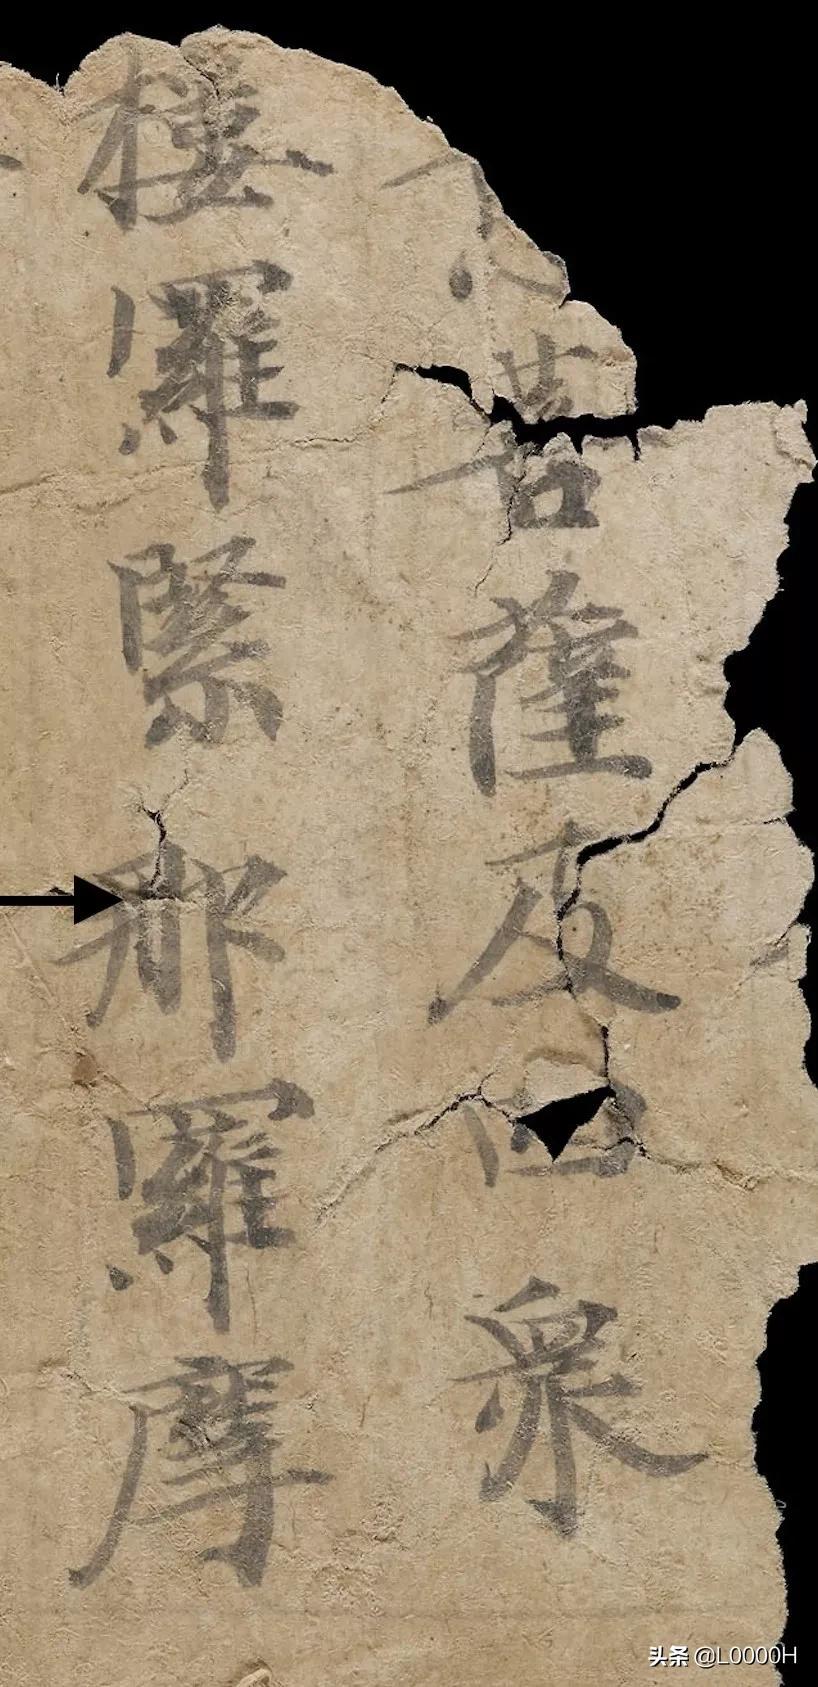 菩薩及四眾
樓羅緊那羅摩
头条 @L0000H